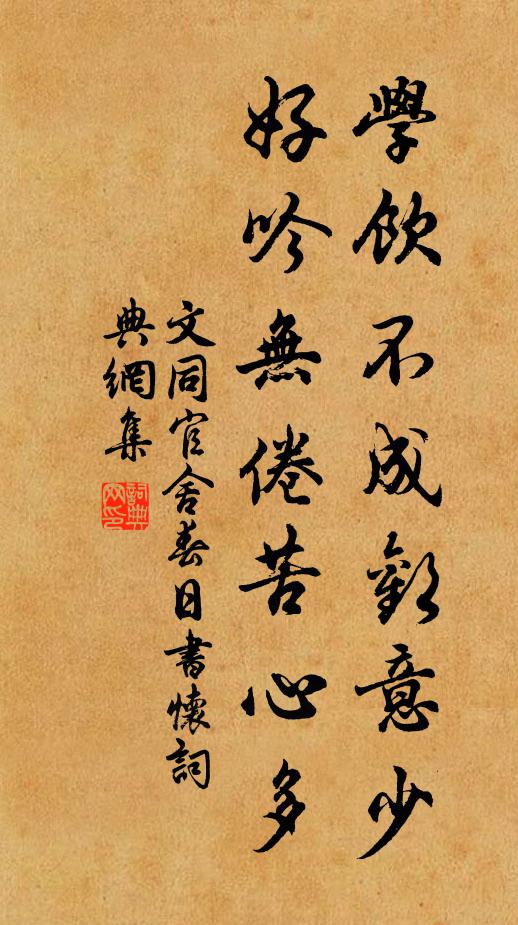 學飲不成歡意少
好吟無倦苦心多
文同官舍春日書懷詞
典網集
詞典
网印